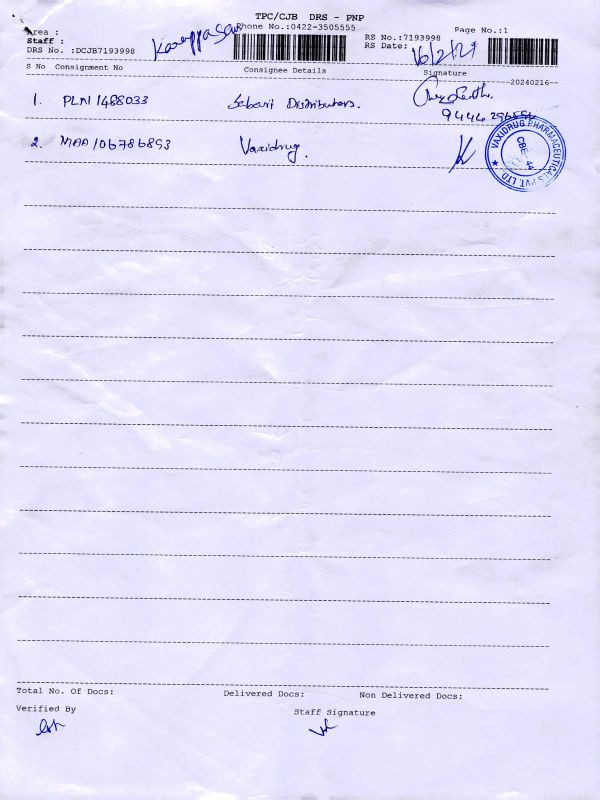 TPC/CJB DRS - PNP
Phone No.:0422-3505555
Page No.:1
Area :
Staff :
DRS No. :DCJB7193998
RS No.:7193998
RS Date: 16/2/24
S No Consignment No Consignee Details Signature
20240216
1. PLN1488033 Sabari Distributors.
2. MAA106786893 Vaxidrug.
VAXIDRUG PHARMACEUTICALS PVT. LTD
CBE-44
Total No. Of Docs: Delivered Docs: Non Delivered Docs:
Verified By Staff Signature